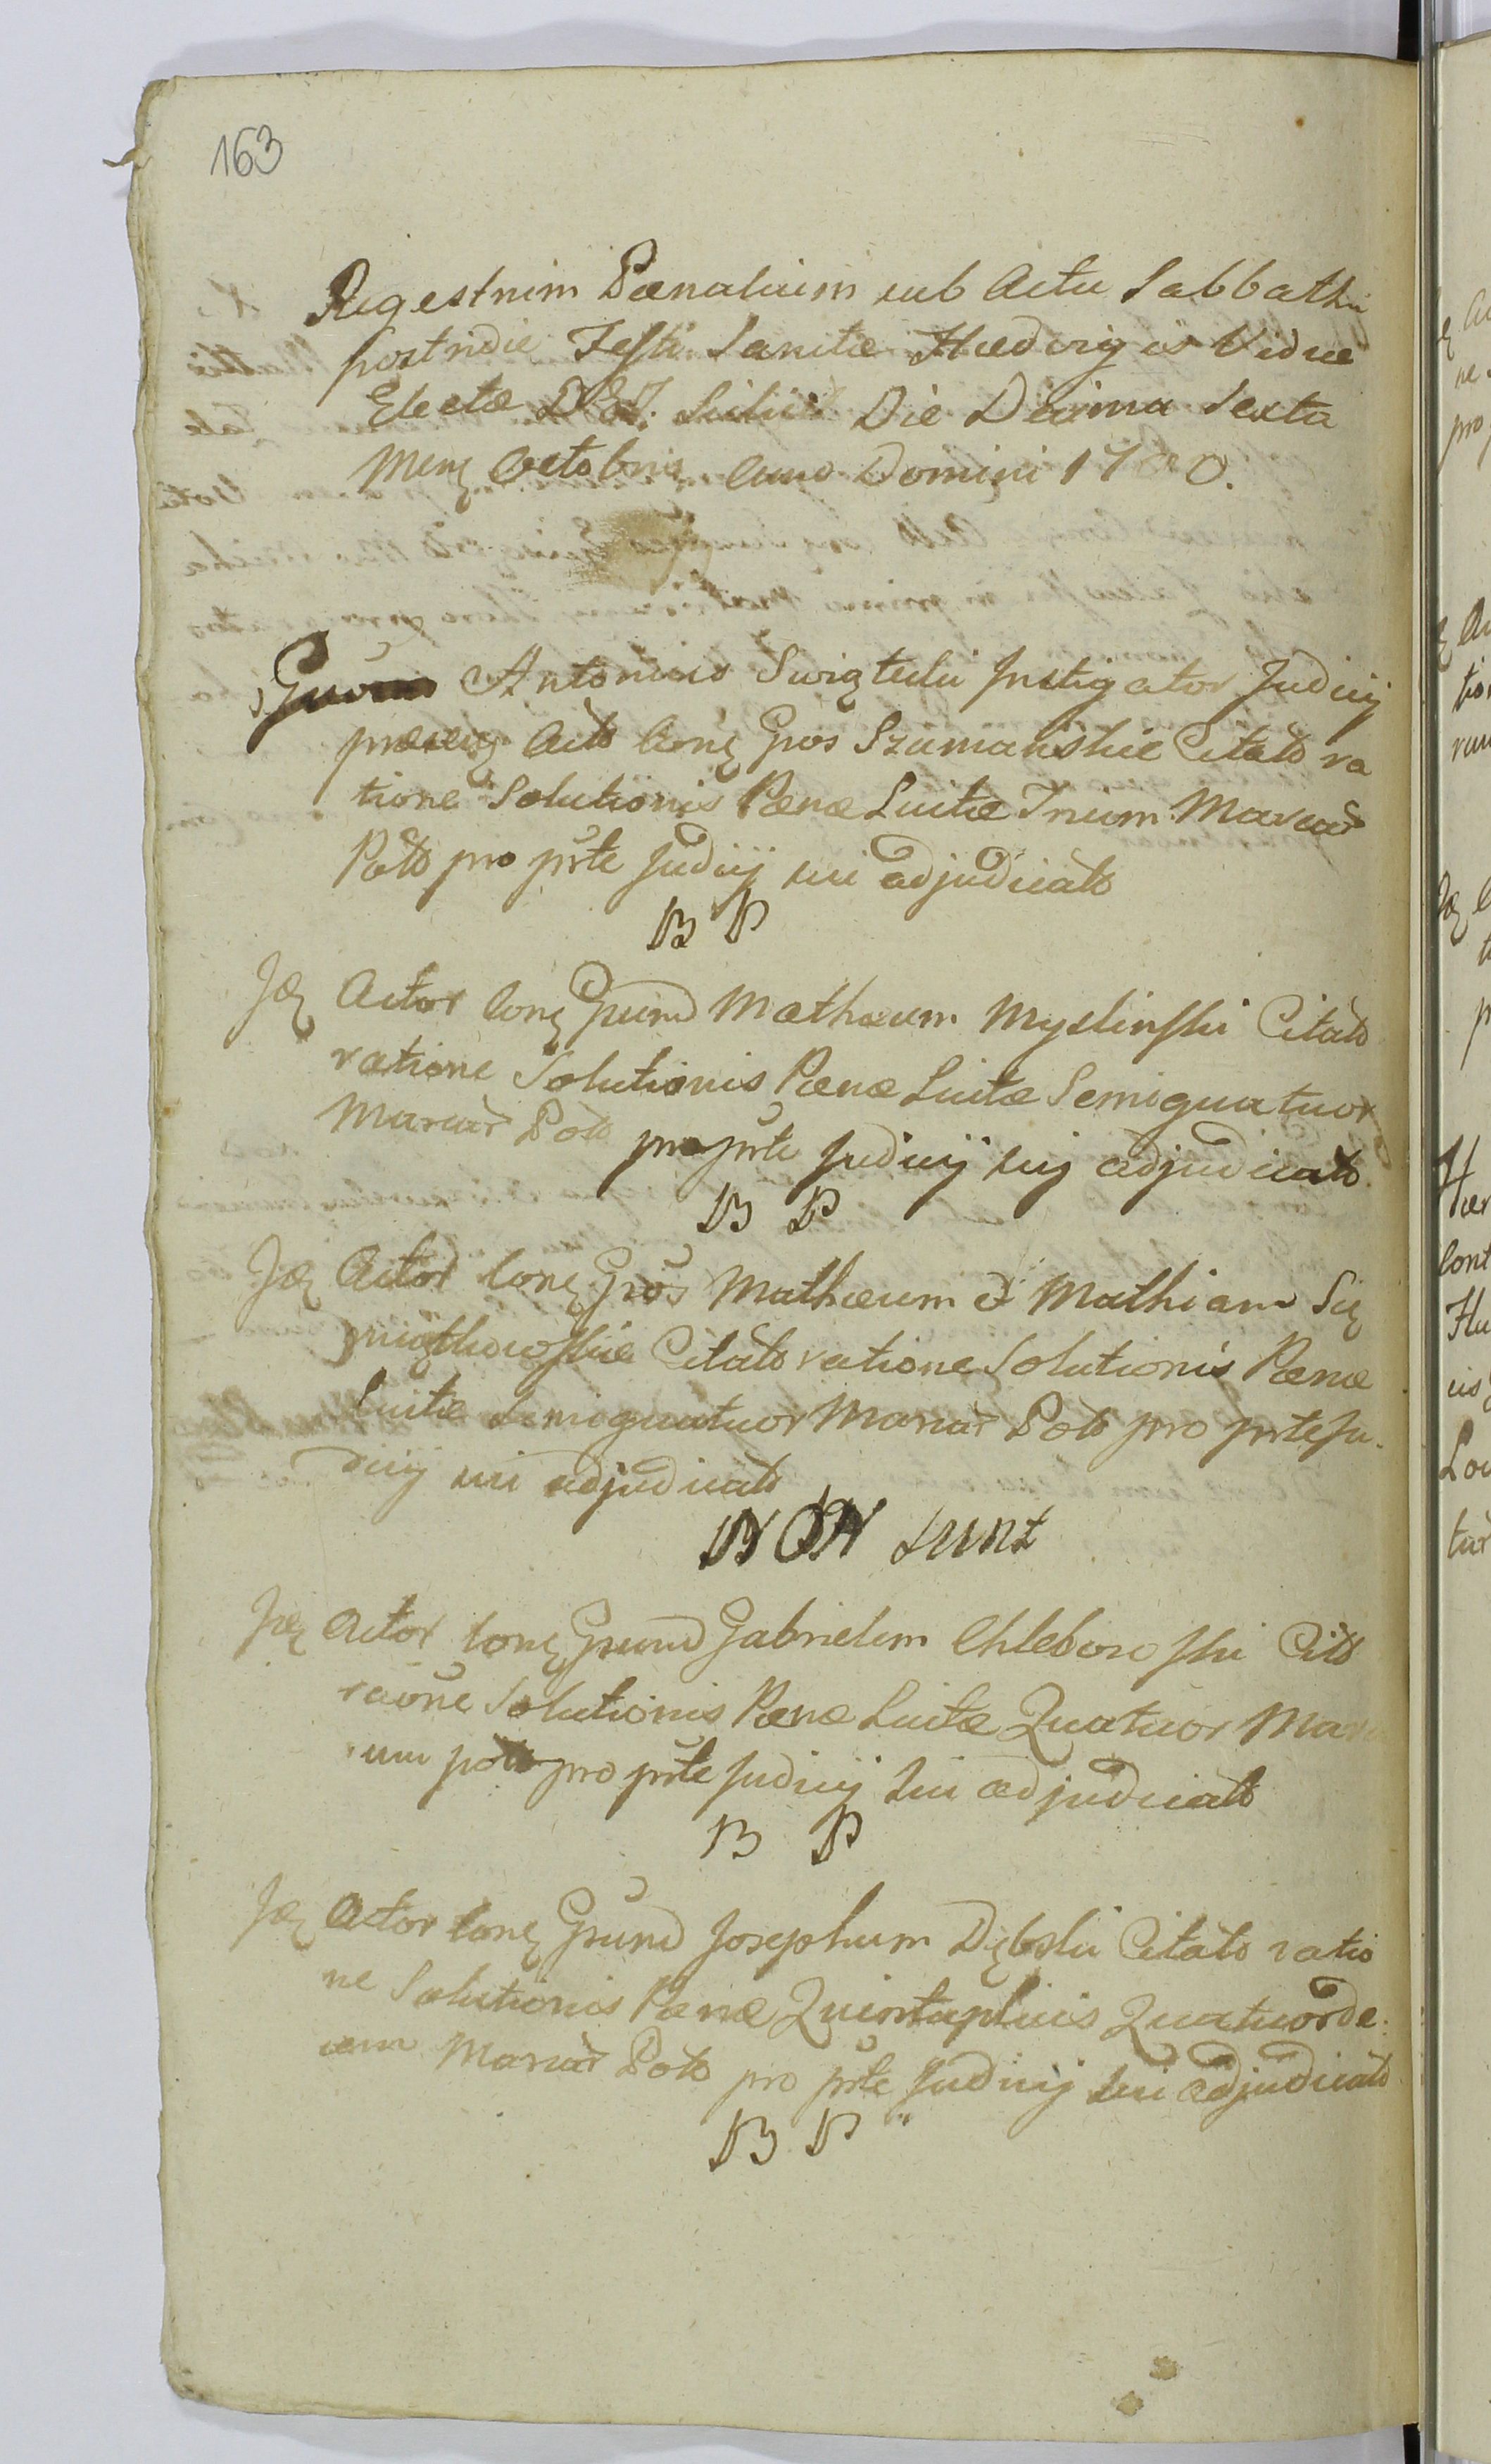 163
Regestrum Pœnalium sub Actu Sabbathi
postridie Festi Sanctæ Hædvigis Viduæ
Electæ DEI. Die Decima Sexta
Menς Octobris Anno Domini 17
Antonius Swiątecki Instigator Judicij
præseς Acto Conς Gnos Szumańskie Citato ra
tione Solutionis Pænæ Luitæ Trium Marcar
Polo pro prte Judicij sui adjudicato
N P
Jdς Actor Conς Gnum Mathæum Myslinski Citato
ratione Solutionis Pænæ Luitæ Semiquatuor
Marcar Polo pro prte Judicij suj adjudicato
N P
Jdς Actor Conς Gnos Mathæum & Mathiam Się
Citato ratione Solutionis Pænæ
Luitæ Semiquatuor Marcar Polo pro prte Ju
dicij sui adjudicato
NON sunt
Jdς Actor Conς Gnum Gabrielem Chlebowski Cito
raone Solutionis Pænæ Luitæ Quatuor Marc
um polo pro prte Judicij sui adjudicato
N P
Jdς Actor Conς Gnum Josephum Dębski Citato ratio
ne Solutionis Pænæ Quintuplicis Quatuorde:
cem Marcar Polo pro prte Judicij sui adjudicato
N P